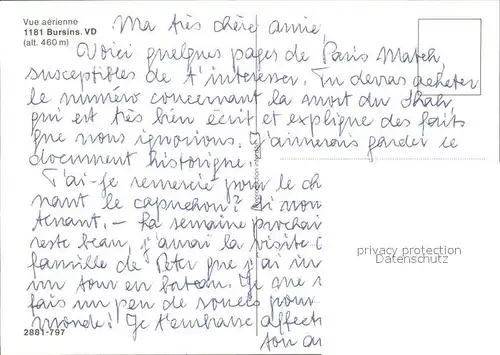 Vue aérienne
1181 Bursins. VD
(alt. 460 m)
Ma très chère amie,
Voici quelques pages de Paris Match,
susceptibles de t'intéresser. Tu devras acheter
le numéro concernant la mort du Shah,
qui est très bien écrit et explique des faits
que nous ignorions. J'aimerais garder ce
document historique.
T'ai-je remercié pour le ch
nant le capuchon? Si non
tenant. – La semaine prochai
reste beau, j'aurai la visite
famille de Peter que j'ai in
un tour en bateau. Je me
fais un peu de soucis pour
monde! Je t'embrasse affecti
ton
privacy protection
Datenschutz
2881-797